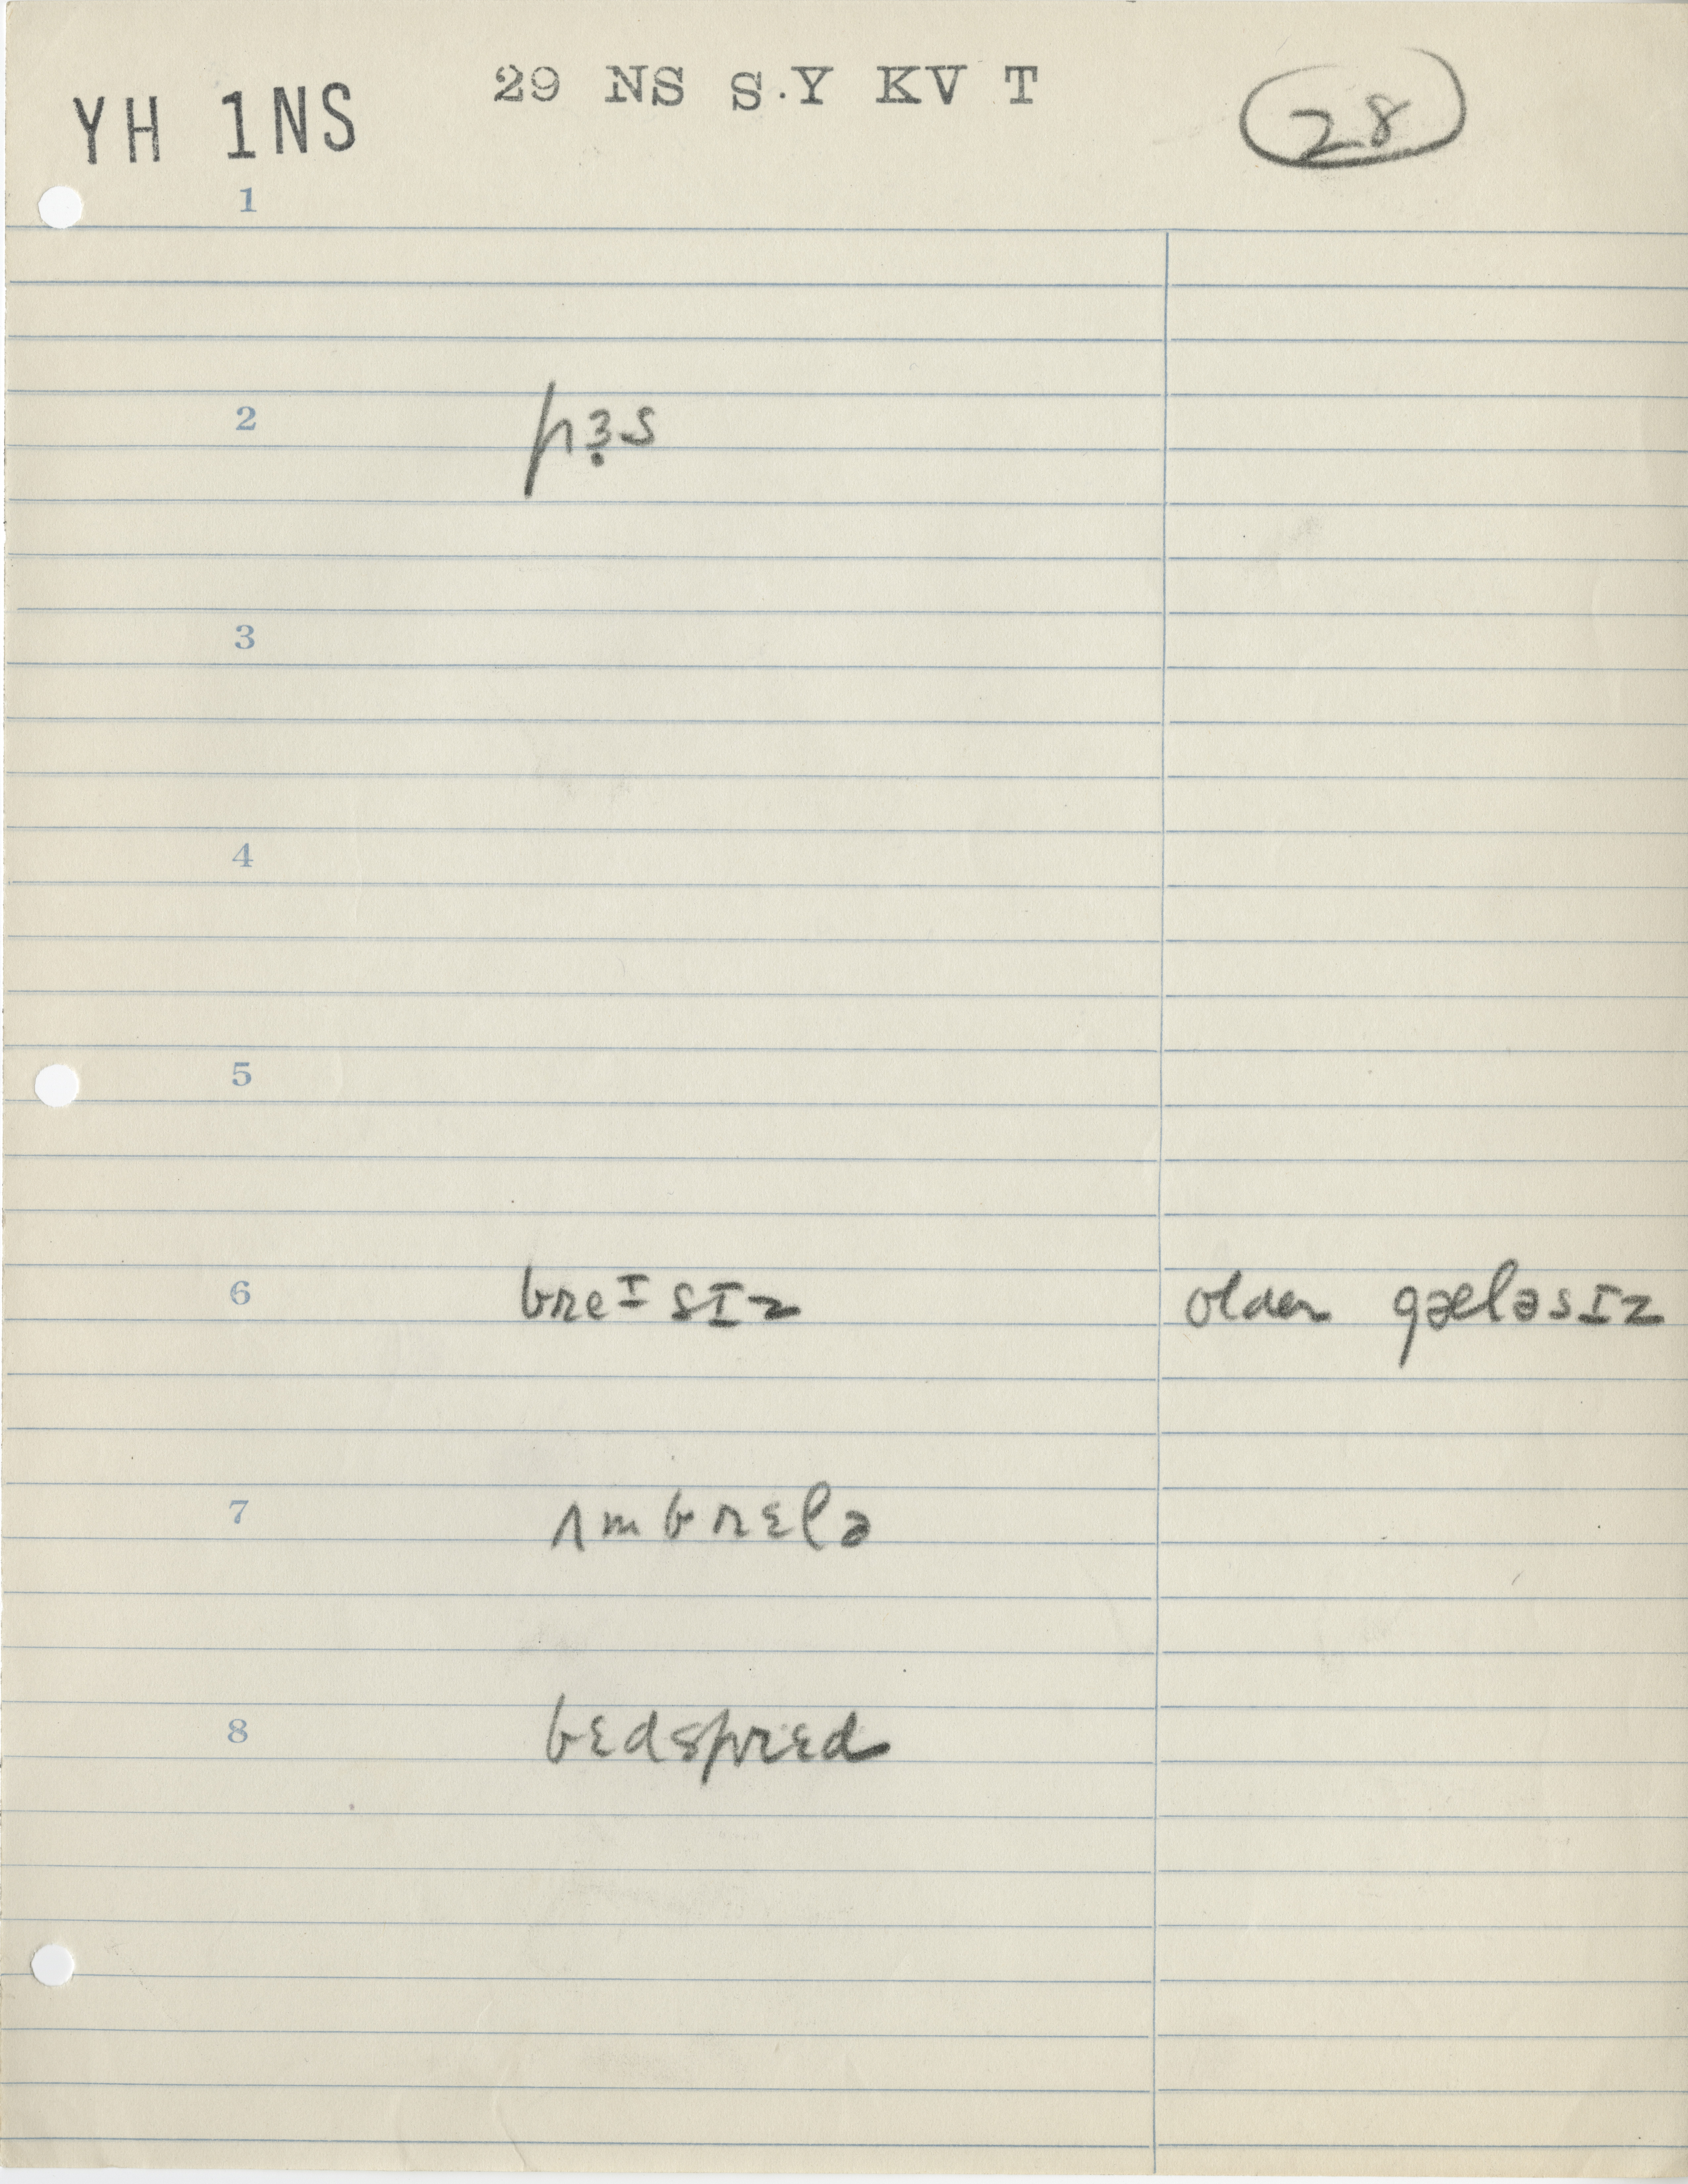 29 NS S.Y KV T
YH 1NS
28
1
2 pɜ̣s
3
4
5
6 breᴵsɪz older gæləsɪz
7 ʌmbrɛlə
8 bɛdsprɛd